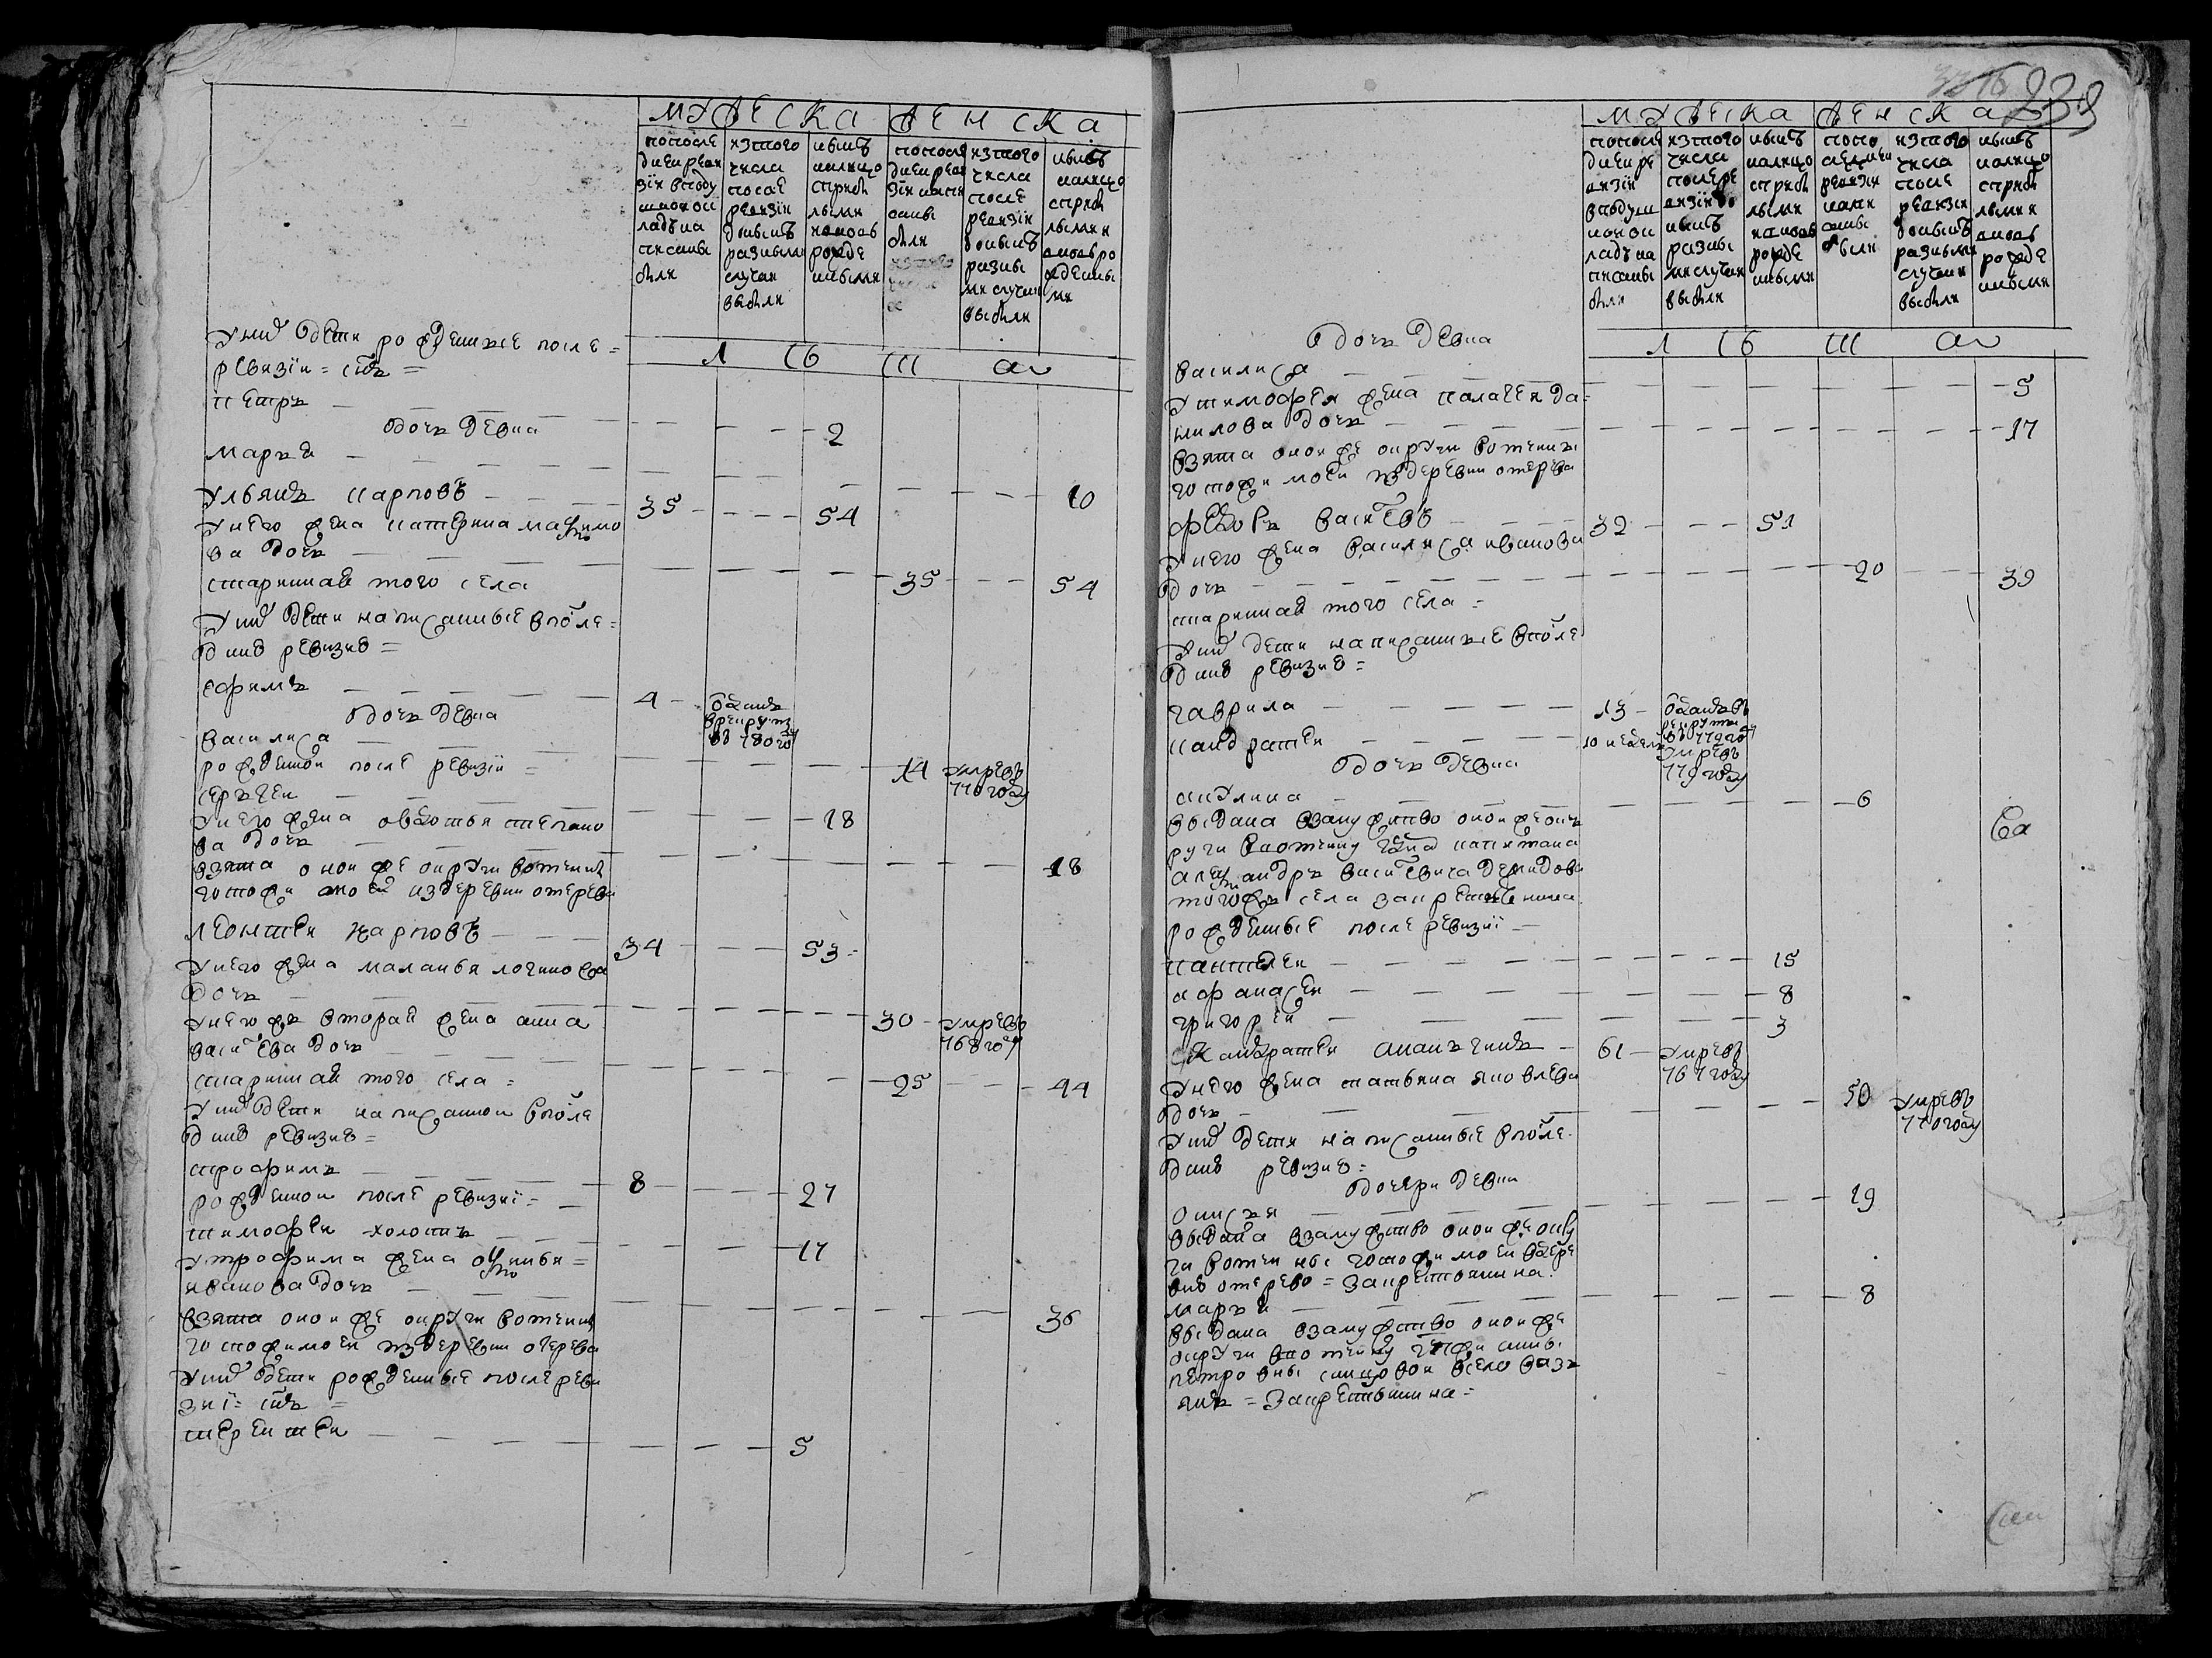 239
МУЖЕСКА ЖЕНСКА
попосле
дней реви
зїи вподу
шной о
кладъ на
писаны
были
изтого
числа
после
ревизїи
доныне
разными
случаи
выбыли
ныне
налицо
сприбы
лыми
ивновь
рожде
нными
попосле
дней реви
зїи напи
саны
были
изтого
числа
после
ревизїи
доныне
разны
ми случаи
выбыли
ныне
налицо
сприбы
лыми и
вновь ро
жденны
ми
Л Е Т А
Униӯ дети рожденные после =
ревизїи = снъ =
петръ — 2
дочь девка
марья — 10
Ульянъ карповъ — 35 — 54
Унего жена катерина максимо
ва дочь — 35 — 54
старинная того села
Униӯ дети написанные впосле =
днюю ревизию =
ефимъ — 4 — отданъ
врекруты
въ 780 году
дочь девка
василиса — 14 — умре въ
770 году
рожденной после ревизїи =
сергей — 18
Унего жена авдотья степано
ва дочь — 18
взята оной же округи вотчины
госпожи моей издеревни отерева
леонтей карповъ — 34 — 53
Унего жена маланья логинова
дочь — 30 — умре въ
768 году
Унегожъ вторая жена анна
васильева дочь — 25 — 44
старинная того села =
Униӯ дети написанной впосле
днюю ревизию =
трофимъ — 8 — 27
рожденной после ревизїи =
тимофей холостъ — 17
Утрофима жена офимья =
иванова дочь — 36
взята оной же округи вотчины
госпожи моей издеревни отерева
Униӯ дети рожденные после реви
зїи = снъ =
терентей — 5
МУЖЕСКА ЖЕНСКА
попосле
дней ре
визїи
вподуш
ной о
кладъ на
писаны
были
изтого
числа
после ре
визїи до
ныне
разны
ми случаи
выбыли
ныне
налицо
сприбы
лыми
ивновь
рожде
нными
попо
следней
ревизїи
напи
саны
были
изтого
числа
после
ревизїи
доныне
разными
случаи
выбыли
ныне
налицо
сприбы
лыми и
вновь
рожде
нными
Л Е Т А
дочь девка
василиса — 5
Утимофея жена палагея да =
нилова дочь — 17
взята оной же округи вотчины
госпожи моей издеревни отерева
федоръ васильевъ — 32 — 51
Унего жена василиса иванова
дочь — 20 — 39
старинная того села =
Униӯ дети написанные впосле
днюю ревизию =
гаврила — 13 — отданъ въ
рекруты
въ 779 году
кандратей — 10 недель — умре въ
779 году
дочь девка
акулина — 6
выдана взамужство оной же ок
руги вотчину гдна капитана
александръ васильевича демидова
тогожъ села закрестьянина
рожденные после ревизїи —
пантелей — 15
афанасей — 8
григорей — 3
Кандратей ананьинъ — 61 — умре въ
767 году
Унего жена татьяна яковлева
дочь — 50 — умре въ
770 году
Униӯ дети написанные впосле
днюю ревизию =
дочери девки
онисья — 19
выдана взамужство оной же окру
ги вотчины госпожи моей вдере
вню отерево = закрестьянина
марья — 8
выдана взамужство оной же
округи вотчину гспжи анны
петровны
= Закрестьянина =